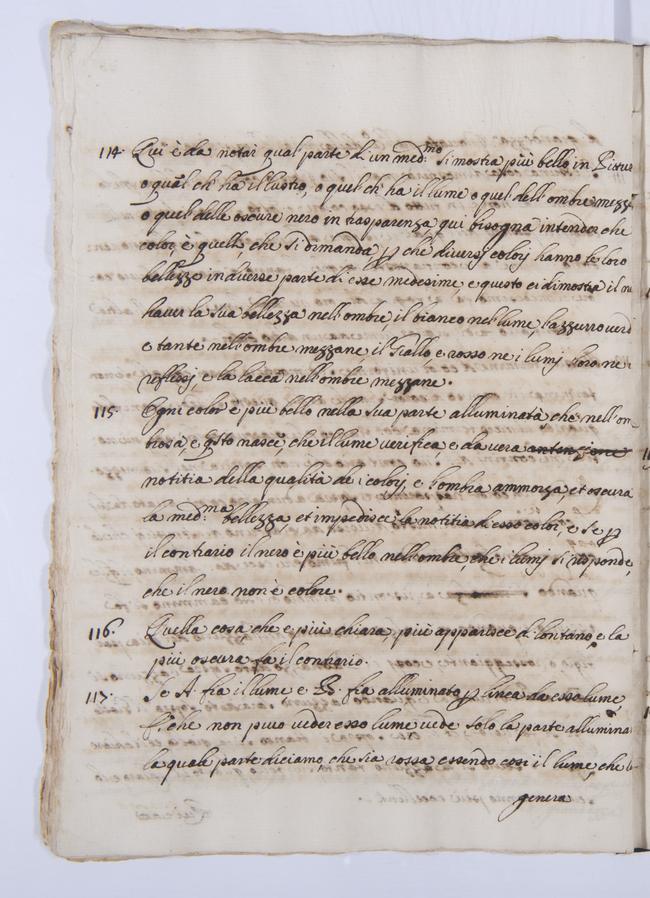 114. Qui è da notar qual parte di un med:mo si mostra più bello in Pittur
o qual ch' ha il lustro, o quel ch' ha il lume o quel dell' ombre mezz
o quel delle oscure nero in trasparenza, qui bisogna intender che
color, è quell', che si dimanda, p che diversj colorj hanno le loro
bellezze in diverse parte di esse medesime, e questo ci dimostra il n
haver la sua bellezza nell' ombre, il bianco nel lume, l'azzurro verd
e tante nell' ombre mezzane il Giallo e rosso ne i lumj l'oro ne i
reflessj, e la lacca nell' ombre mezzane.
115. Ogni color è più bello nella sua parte alluminata, che nell' om-
brosa, e qsto nasce, che il lume verifica, e da vera
notitia della qualità de i colorj, e l'ombra ammorza et oscura
la med:ma bellezza, et impedisce la notitia di esso color, e se p
il contrario il nero è più bello nell' ombre, che i lumj si risponde,
che il nero non è colore.
116. Quella cosa, che e più chiara, più apparisce di lontano, e la
più oscura fa il contrario.
117. Se A. fia il lume e B. fia alluminato p linea da esso lume,
che non puo veder esso lume vede solo la parte allumina
la quale parte diciamo, che sia rossa essendo così il lume, che
genera